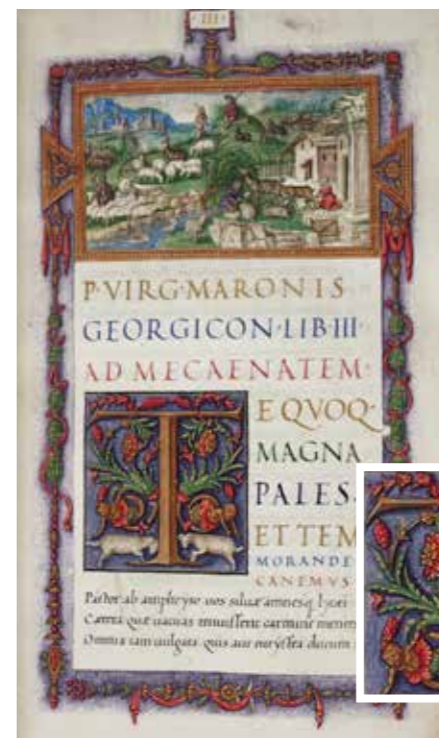 III
P·VIRG·MARONIS
GEORGICON·LIB·III·
AD MECAENATEM·
T
E QVOQ·
MAGNA
PALES·
ET TEM
MORANDE
CANEMVS
Pastor ab amphryso uos siluae amnesq lycaei
Caetera quae uacuas carmine
Omnia iam uulgata quis aut durum